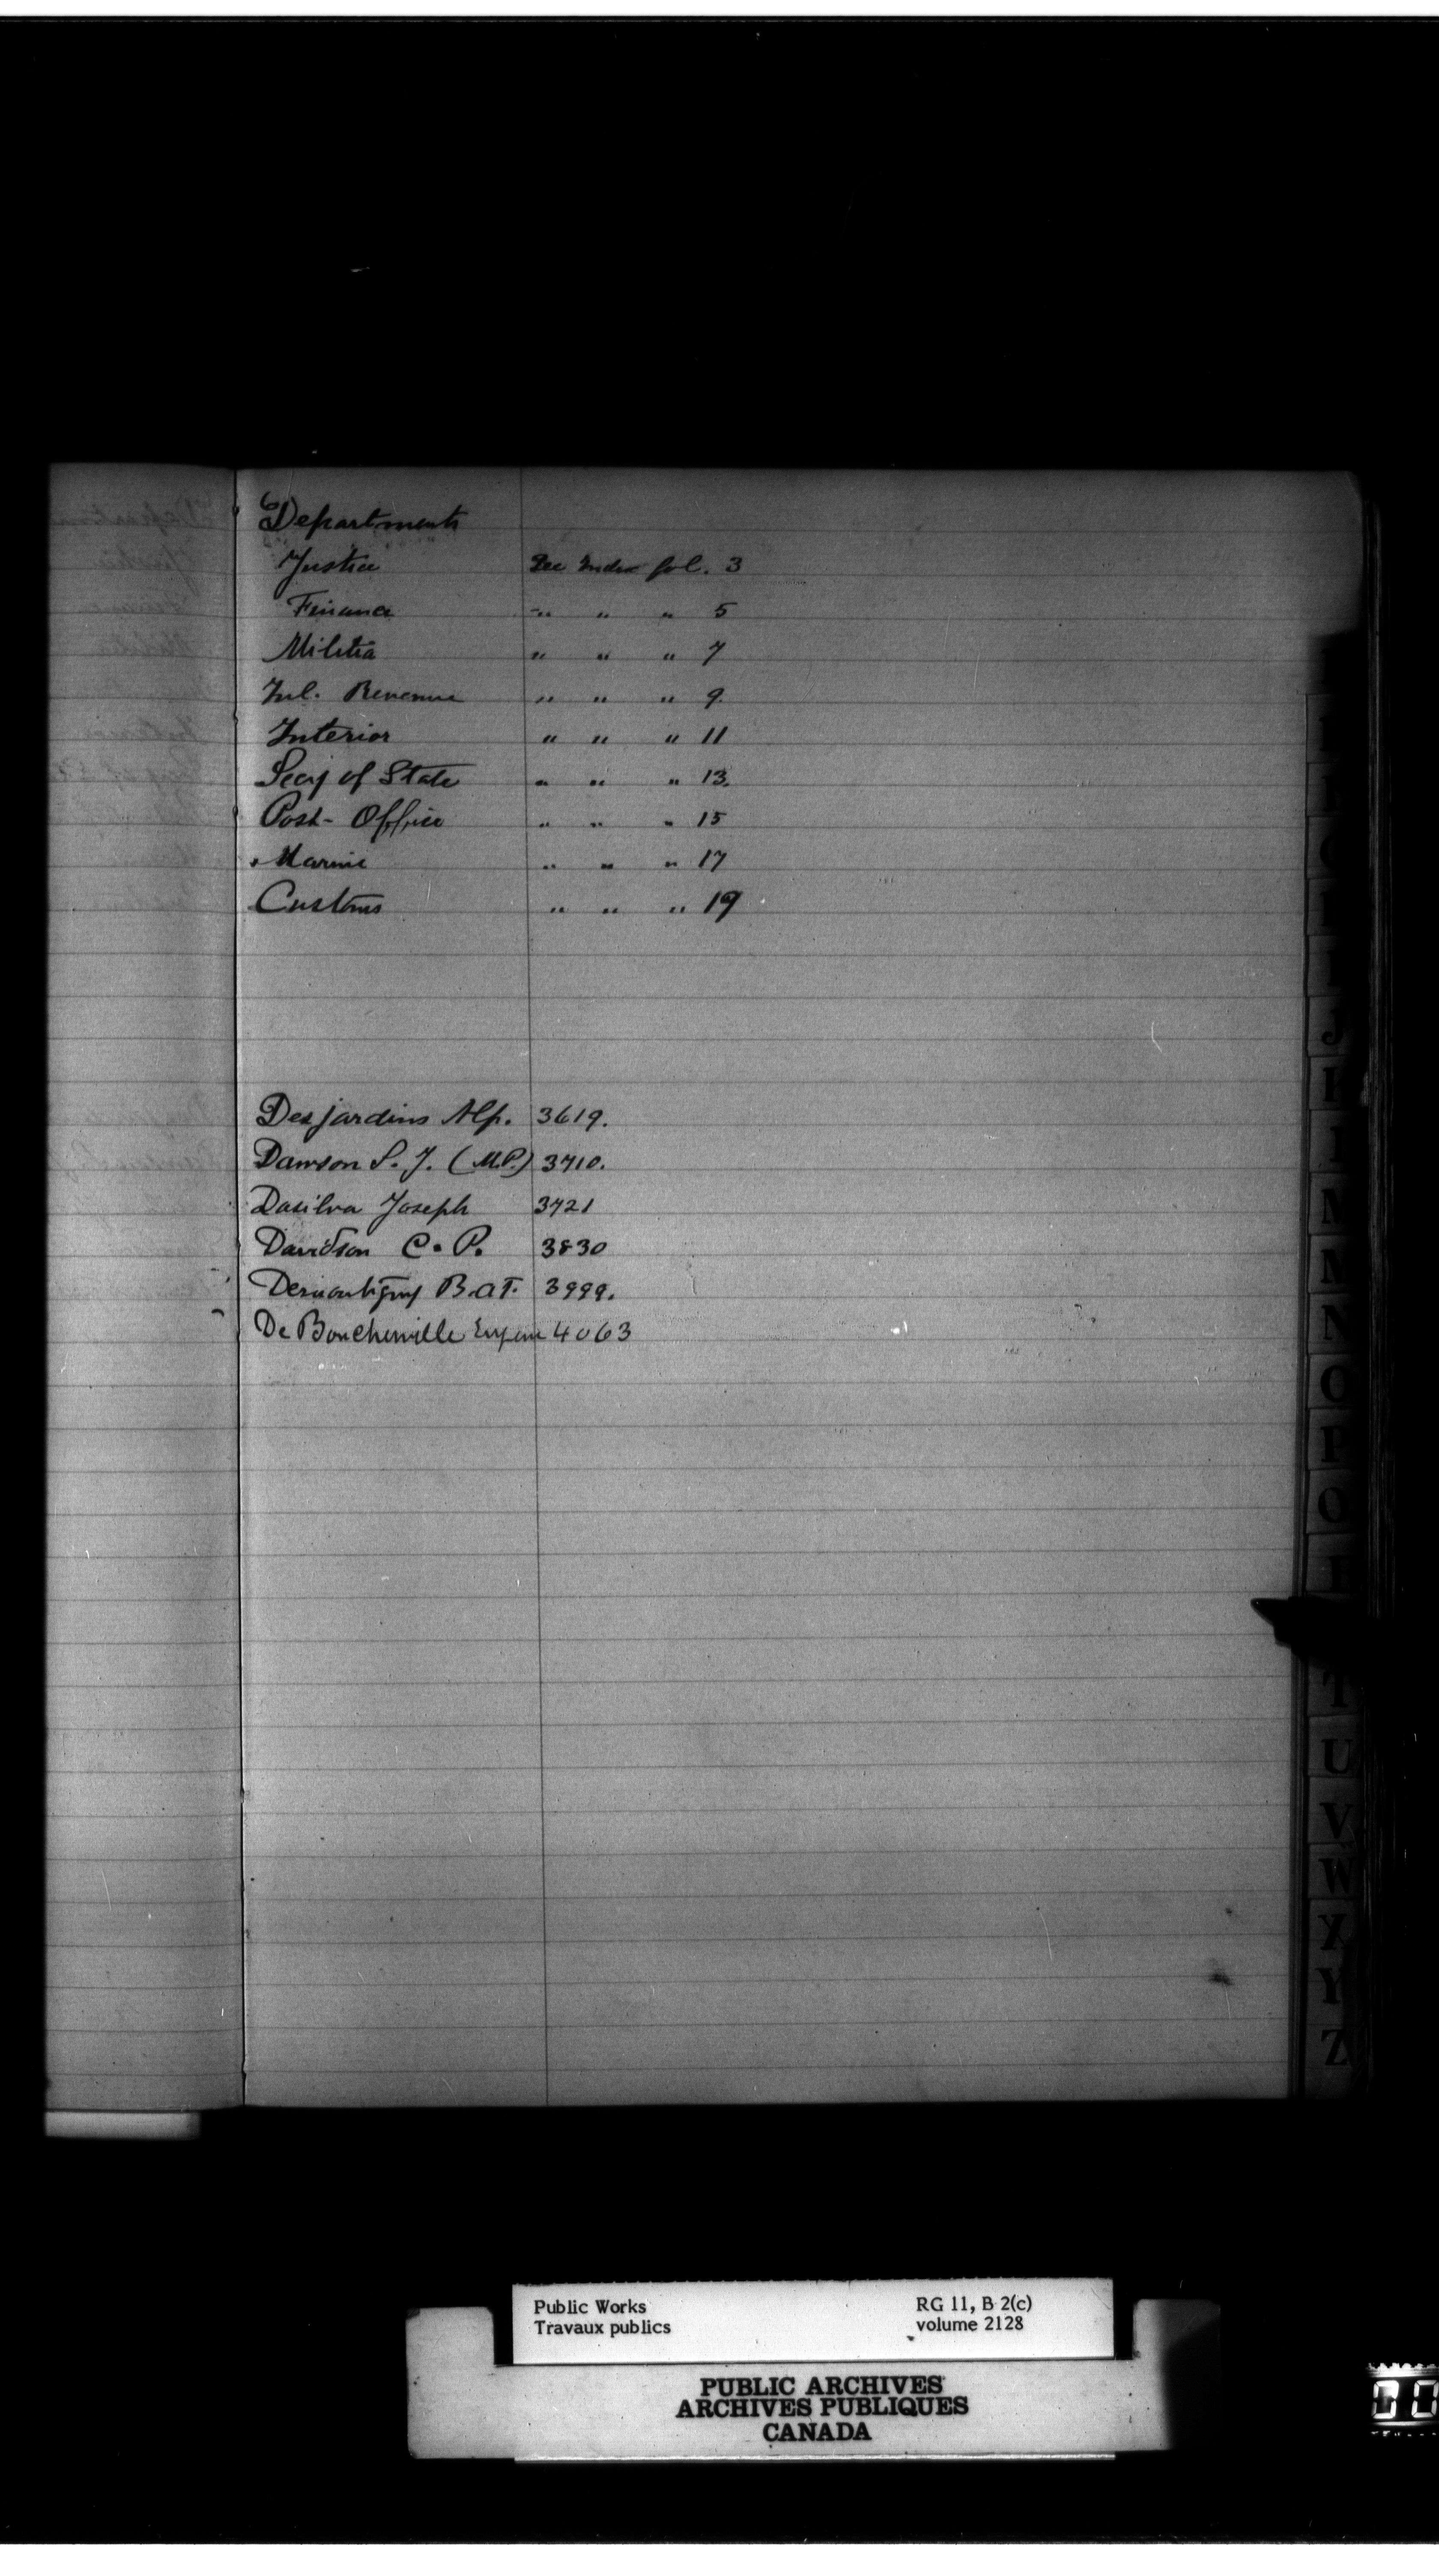 Departments
Justice See Index fol. 3
Finance " " " 5
Militia " " " 7
Inl. Revenue " " " 9.
Interior " " " 11
Secy of State " " " 13.
Post-Office " " " 15
Marine " " " 17
Customs " " " 19
Desjardins Alp. 3619.
Dawson S. J. (M.P.) 3710.
Dasilva Joseph 3721
Davidson C. P. 3830
Demontigny B.A.T. 3999.
De Boucherville Eugene 4063
J
O
P
Q
T
U
V
W
X
Y
Z
Public Works RG 11, B 2(c)
Travaux publics volume 2128
PUBLIC ARCHIVES
ARCHIVES PUBLIQUES
CANADA